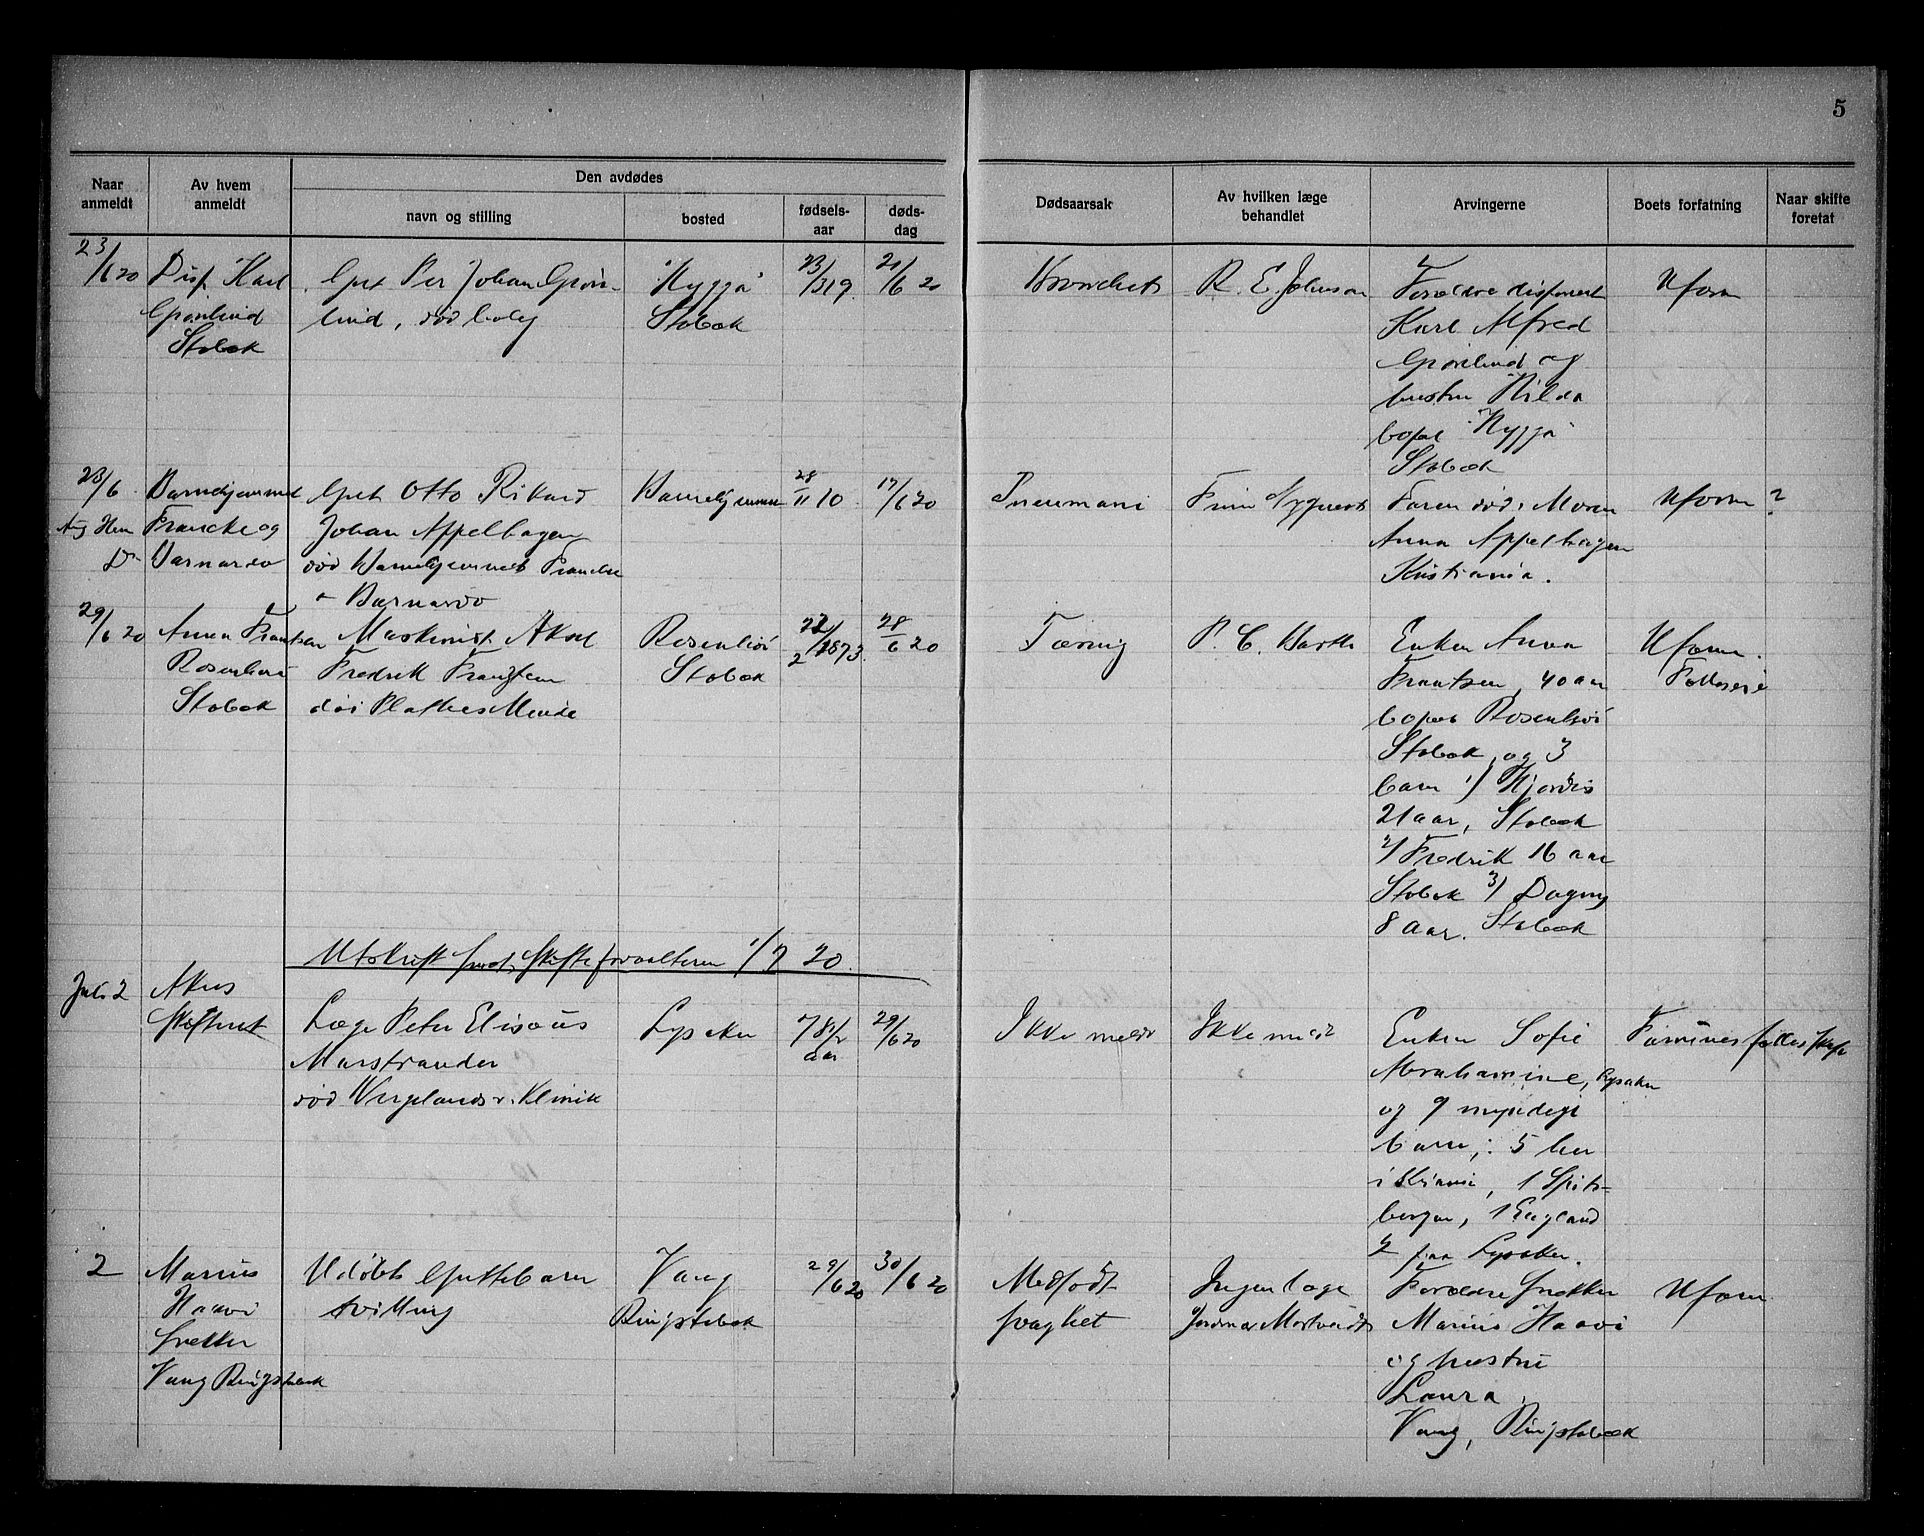 5
Naar anmeldt
Av hvem anmeldt
Den avdødes
navn og stilling
bosted
fødsels-aar
døds-dag
Dødsaarsak
Av hvilken læge behandlet
Arvingerne
Boets forfatning
Naar skifte foretat
23/6 20
Disp. Karl
Grønlund
Stabæk
Gut Per Johan Grøn-
lund, død bolig
"Hygga"
Stabæk
23/3 19
21/6 20
Bronchit
R. E. Johnson
Forældre disponent
Karl Alfred
Grønlund og
hustru Hilda
bopæl "Hygga"
Stabæk
Uform
23/6
Barnehjemmet
Francke og
Barnardo
Gut Otto Rikard
Johan Appelhagen
død Barnehjemmet Francke
Barnardo
Barnehjemmet
28/11 10
17/6 20
Pneumoni
Faren død. Moren
Anna Appelhagen
Kristiania.
Uform?
29/6 20
Anna Frantzen
Rosenhøi
Stabæk
Maskinist Aksel
Fredrik Frantzen
Rosenhøi
Stabæk
22/2 1873
28/6 20
Tæring
P. C. Barth
Enken Anna
Frantzen, 40 aar
bopæl Rosenhøi
Stabæk, og 3
barn 1) Hjørdis
21 aar, Stabæk
2) Fredrik 16 aar
Stabæk 3) Dagny
8 aar. Stabæk
Uform.
Fælleseie
Utskrift sendt Skifteforvalteren 1/7 20.
Juli 2
Akers
Skifteret
Læge Peter Elisæus
Marstrander
død Wergelandsv. Klinik
Lysaker
78 1/2
aar
29/6 20
Ikke meldt
Ikke meldt
Enken Sofie
Abrahamine, Lysaker
og 9 myndige
barn: 5 her
i Kr.ania, 1 Spits-
bergen, 1 England
2 paa Lysaker.
2
Marius
Haavi
Snekker
Vang Ringstabæk
Udøbt Guttebarn
tvilling
Vang
Ringstabæk
29/6 20
30/6 20
Medfødt
svaghet
Ingen læge
Forældre snekker
Marius Haavi
og hustru
Laura,
Vang, Ringstabæk
Uform